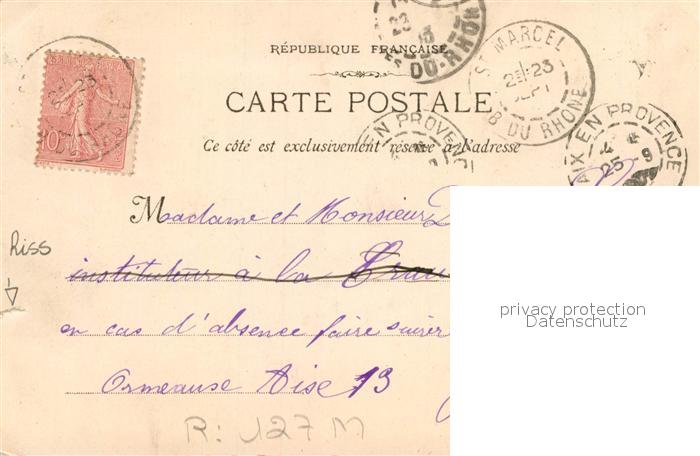 RÉPUBLIQUE FRANÇAISE
CARTE POSTALE
Ce côté est exclusivement réservé à l'adresse
ST MARCEL
2E 23
SEPT
B DU RHONE
DU-RHONE
EN PROVENC
AIX EN PROVENCE
25 -9
10
Madame et Monsieur
instituteur à la Crau
en cas d'absence faire suivre
Ormeause Aise 13
Riss
privacy protection
Datenschutz
R: 127 M